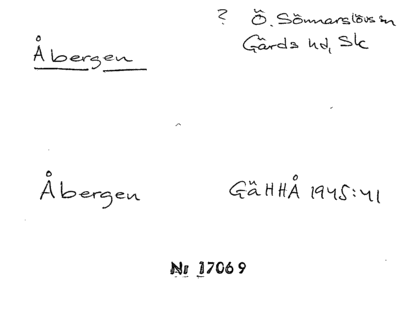 ? Ö. Sönnarslövs sn
Åbergen
Gärds hd, Sk
Åbergen GäHHÅ 1945:41
Nr 17069